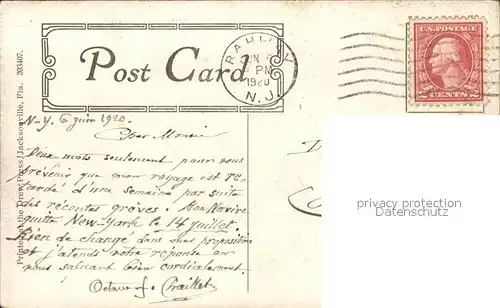 Post Card
RAHWAY
JUN
PM
1920
N.J.
U.S. POSTAGE
2 CENTS 2
Printed at the Drew Press, Jacksonville, Fla. 203407.
N-Y. 6 juin 1920.
Cher Monsieur
Deux mots seulement pour vous
prévenir que mon voyage est re-
tardé d'une semaine par suite
des récentes grèves. Mon Navire
quitte New-York le 14 juillet.
Rien de changé dans mes propositions
et j'attends votre réponse en
vous saluant bien cordialement.
Octave J.
privacy protection
Datenschutz